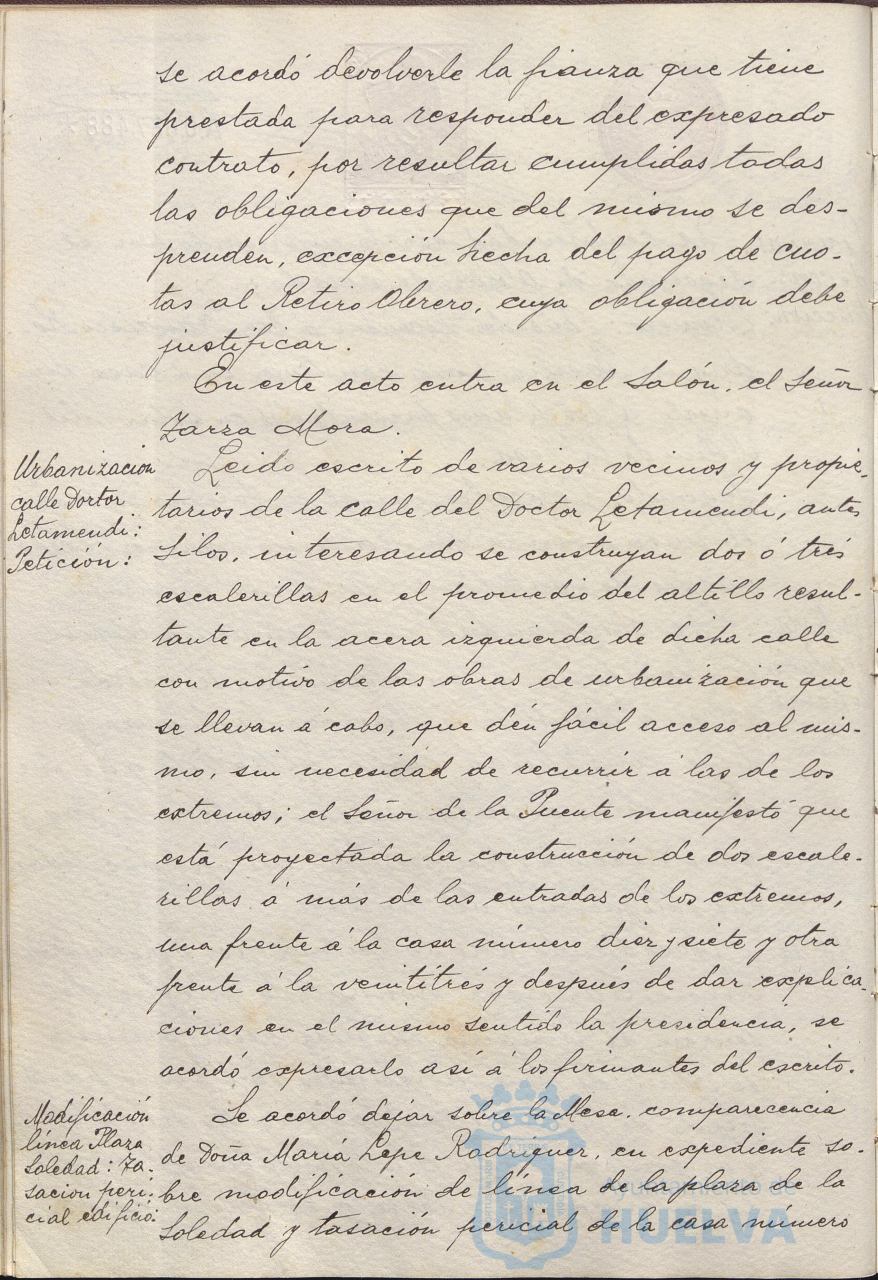 se acordó devolverle la fianza que tiene
prestada para responder del expresado
contrato, por resultar cumplidas todas
las obligaciones que del mismo se des-
prenden, excepción hecha del pago de cuo-
tas al Retiro Obrero, cuya obligación debe
justificar.
En este acto entra en el Salón, el Señor
Zarza Mora.
Urbanización
calle Doctor
Letamendi:
Petición:
Leido escrito de varios vecinos y propie-
tarios de la calle del Doctor Letamendi, antes
Silos, interesando se construyan dos ó trés
escalerillas en el promedio del altillo resul-
tante en la acera izquierda de dicha calle
con motivo de las obras de urbanización que
se llevan á cabo, que dén fácil acceso al mis-
mo, sin necesidad de recurrir á las de los
extremos; el Señor de la Puente manifestó que
está proyectada la construcción de dos escale-
rillas á más de las entradas de los extremos,
una frente á la casa número diez y siete y otra
frente á la veintitrés y después de dar explica-
ciones en el mismo sentido la presidencia, se
acordó expresarlo así á los firmantes del escrito.
Modificación
línea Plaza
Soledad: Ta-
sacion peri-
cial edificio:
Se acordó dejar sobre la Mesa, comparecencia
de Doña Mariá Lepe Rodriguez, en expediente so-
bre modificación de línea de la plaza de la
Soledad y tasación pericial de la casa número
Ayuntamiento de
HUELVA